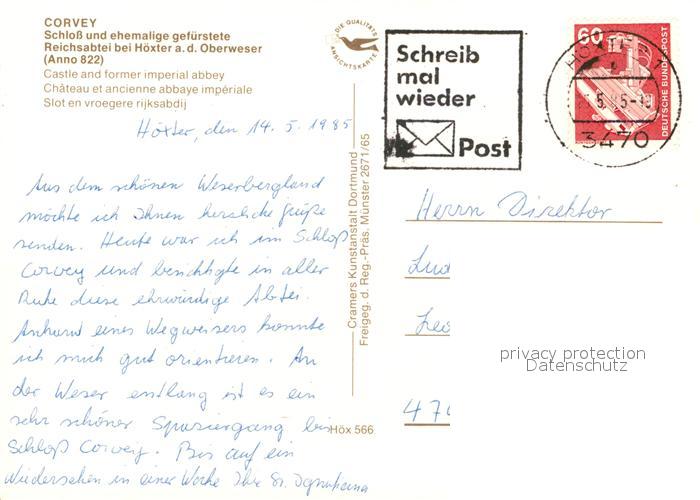 CORVEY
Schloß und ehemalige gefürstete
Reichsabtei bei Höxter a. d. Oberweser
(Anno 822)
Castle and former imperial abbey
Château et ancienne abbaye impériale
Slot en vroegere rijksabdij
Höxter, den 14. 5. 1985
Aus dem schönen Weserbergland
möchte ich Ihnen herzliche Grüße
senden. Heute war ich im Schloß
Corvey und besichtigte in aller
Ruhe diese ehrwürdige Abtei.
Anhand eines Wegweisers konnte
ich mich gut orientieren. An
der Weser entlang ist es ein
sehr schöner Spaziergang bis
Schloß Corvey. Bis auf ein
Wiedersehen in einer Woche Ihre
Höx 566
Cramers Kunstanstalt Dortmund
Freigeg. d. Reg.-Präs. Münster 2671/65
DIE QUALITÄTS
ANSICHTSKARTE
Schreib
mal
wieder
Post
60
DEUTSCHE BUNDESPOST
3470
Herrn Direktor
privacy protection
Datenschutz